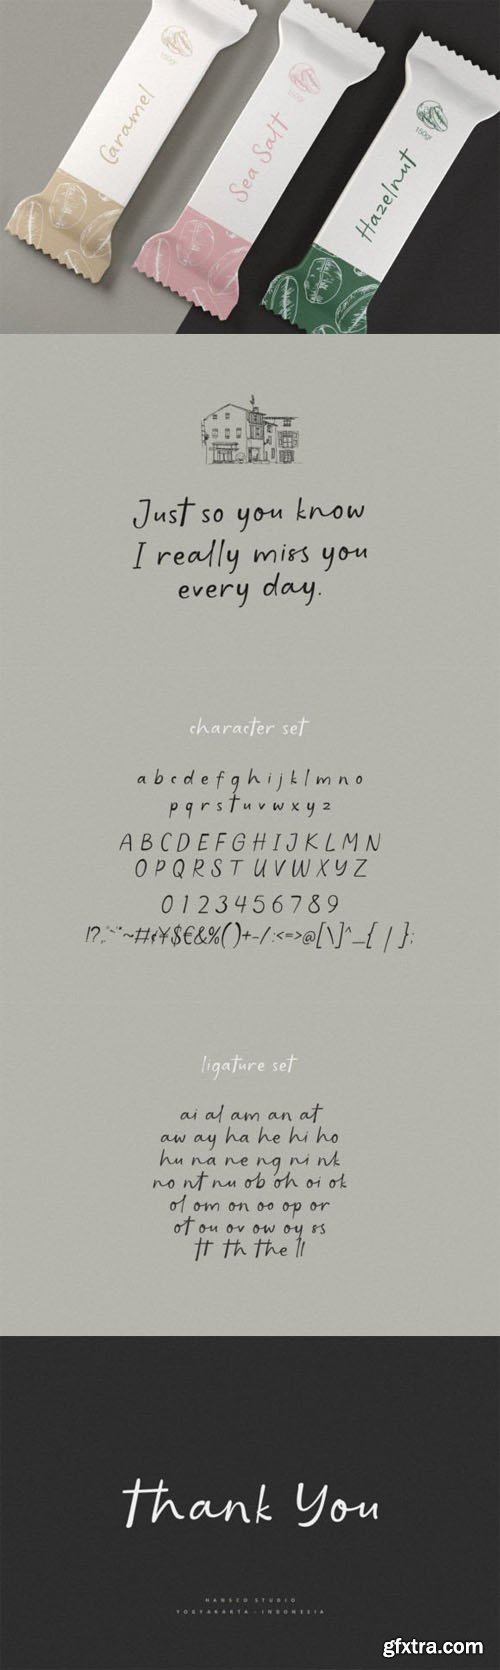 150gr
Caramel
150gr
Sea Salt
150gr
Hazelnut
Just so you know
I really miss you
every day.
character set
a b c d e f g h i j k l m n o
p q r s t u v w x y z
A B C D E F G H I J K L M N
O P Q R S T U V W X Y Z
0 1 2 3 4 5 6 7 8 9
!?,.~#¢¥$€&%()+-/:<=>@[\]^_{|};
ligature set
ai al am an at
aw ay ha he hi ho
hu na ne ng ni nk
no nt nu ob oh oi ok
ol om on oo op or
ot ou ov ow oy ss
tt th the ll
Thank You
HANSCO STUDIO
YOGYAKARTA - INDONESIA
gfxtra.com